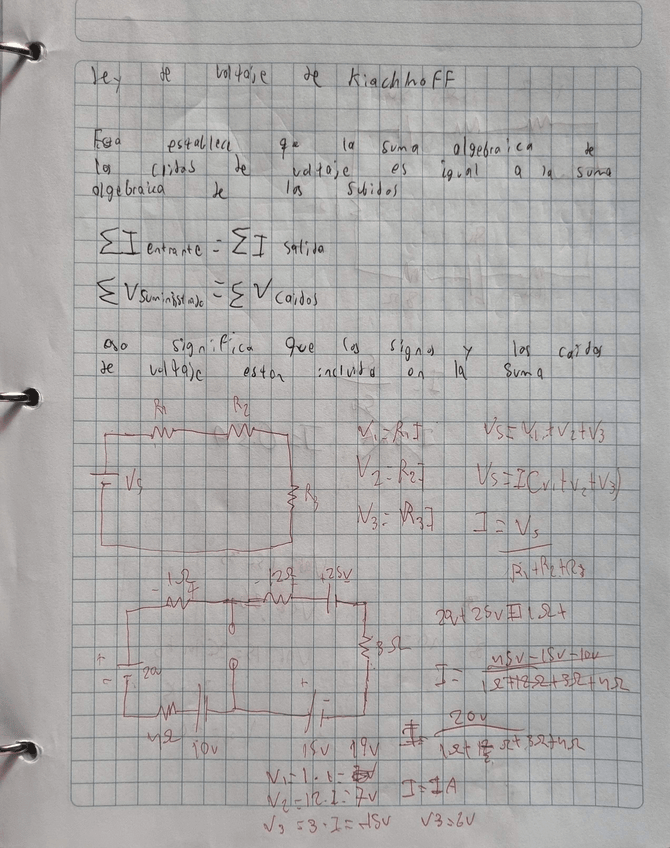 Ley de voltaje de KiachhoFF
Esa establece que la suma algebraica de
las caidas de voltaje es igual a la suma
algebraica de las subidas
ΣI entrante = ΣI salida
ΣV suministrado = ΣV caidas
eso significa que los signos y las caidas
de voltaje estan incluida en la suma
R1 R2
V1=R1I Vs=V1+V2+V3
Vs
V2=R2I Vs=I(V1+V2+V3)
R3
V3=R3I I=Vs
R1+R2+R3
-1Ω -12Ω +25V
I I
20+25V 1Ω+
3Ω
+ - 20
I= 45V-15V-10V
1Ω+12Ω+3Ω+4Ω
4Ω 10V + - 15V 19V
I= 20V
1Ω+12Ω+3Ω+4Ω
V1=1·1=
V2=12·I=7V I=IA
V3=3·I=-15V V3=6V